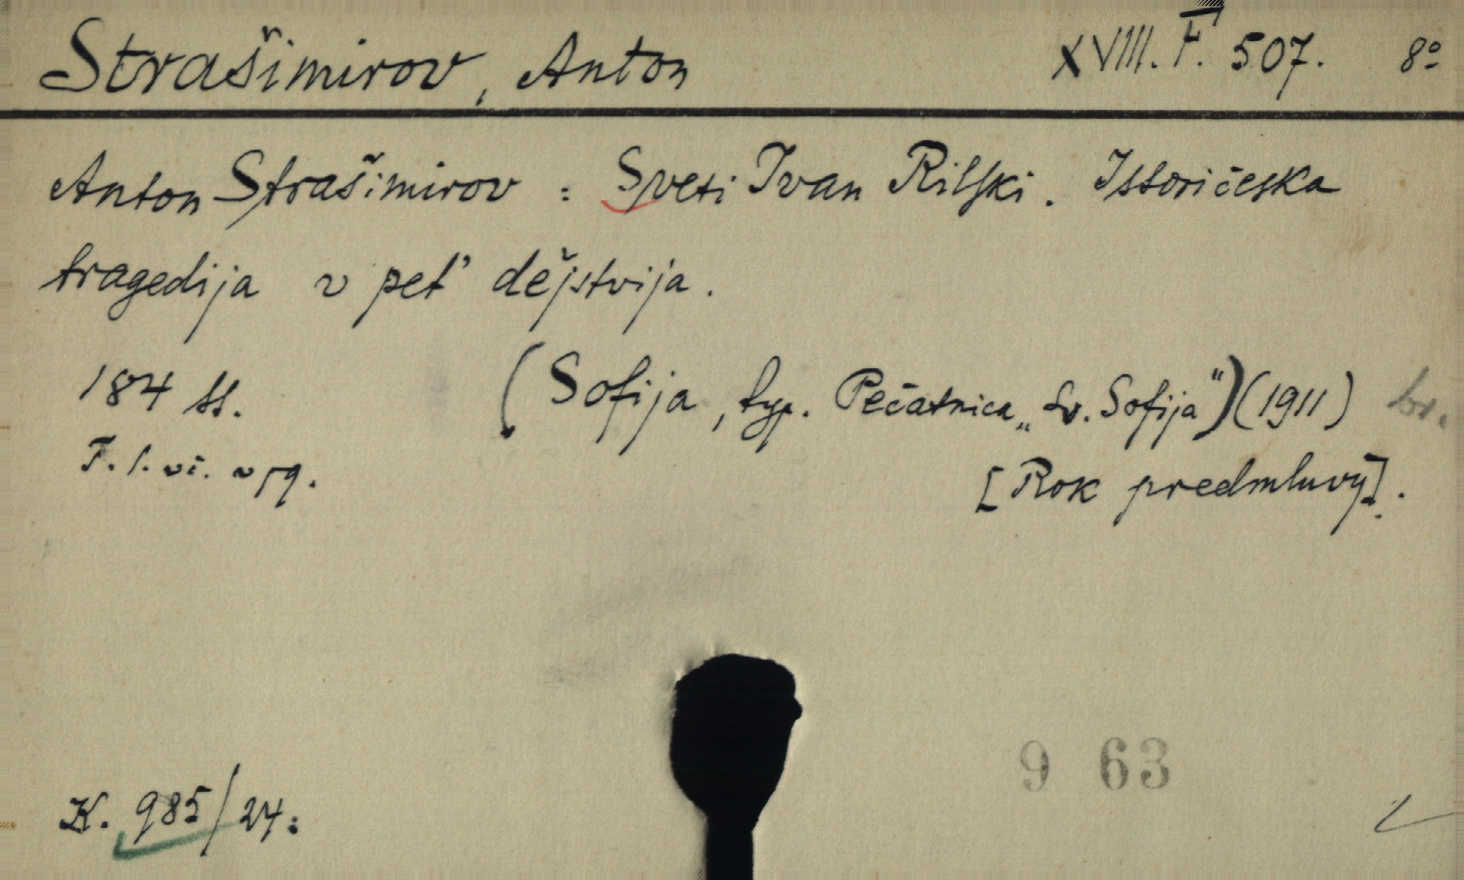 Strašimirov, Anton XVIII. F. 507. 8°
Anton Strašimirov : Sveti Ivan Rilski. Istoričeska
tragedija v peť dějstvija.
184 ss. (Sofija, typ. Pečatnica „Sv. Sofija“) (1911)
[Rok předmluvy].
K. 985/24.
9 63